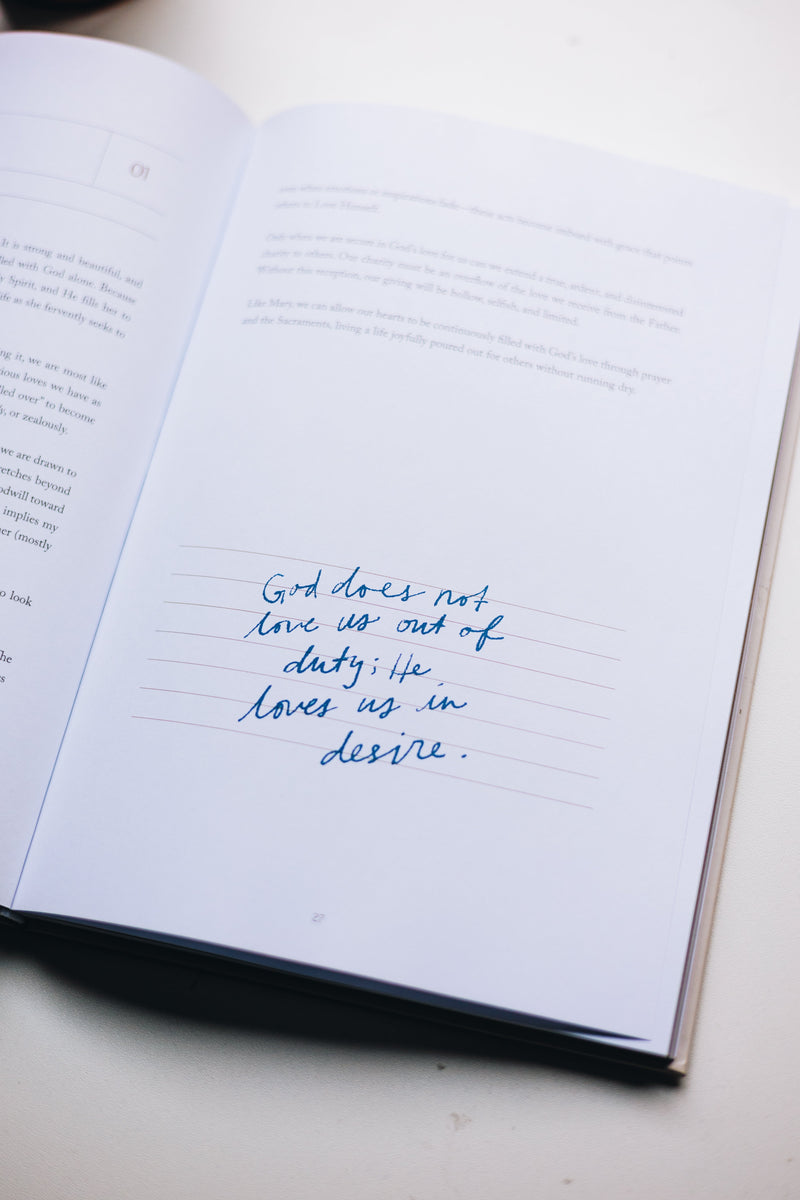 01
It is strong and beautiful, and
led with God alone. Because
y Spirit, and He fills her to
ife as she fervently seeks to
ng it, we are most like
ious loves we have as
led over” to become
y, or zealously.
we are drawn to
retches beyond
odwill toward
implies my
er (mostly
o look
he
s
when emotions or inspirations fade—these acts become imbued with grace that points
others to Love Himself.
Only when we are secure in God's love for us can we extend a true, ardent, and disinterested
charity to others. Our charity must be an overflow of the love we receive from the Father.
Without this reception, our giving will be hollow, selfish, and limited.
Like Mary, we can allow our hearts to be continuously filled with God's love through prayer
and the Sacraments, living a life joyfully poured out for others without running dry.
God does not
love us out of
duty; He
loves us in
desire.
27